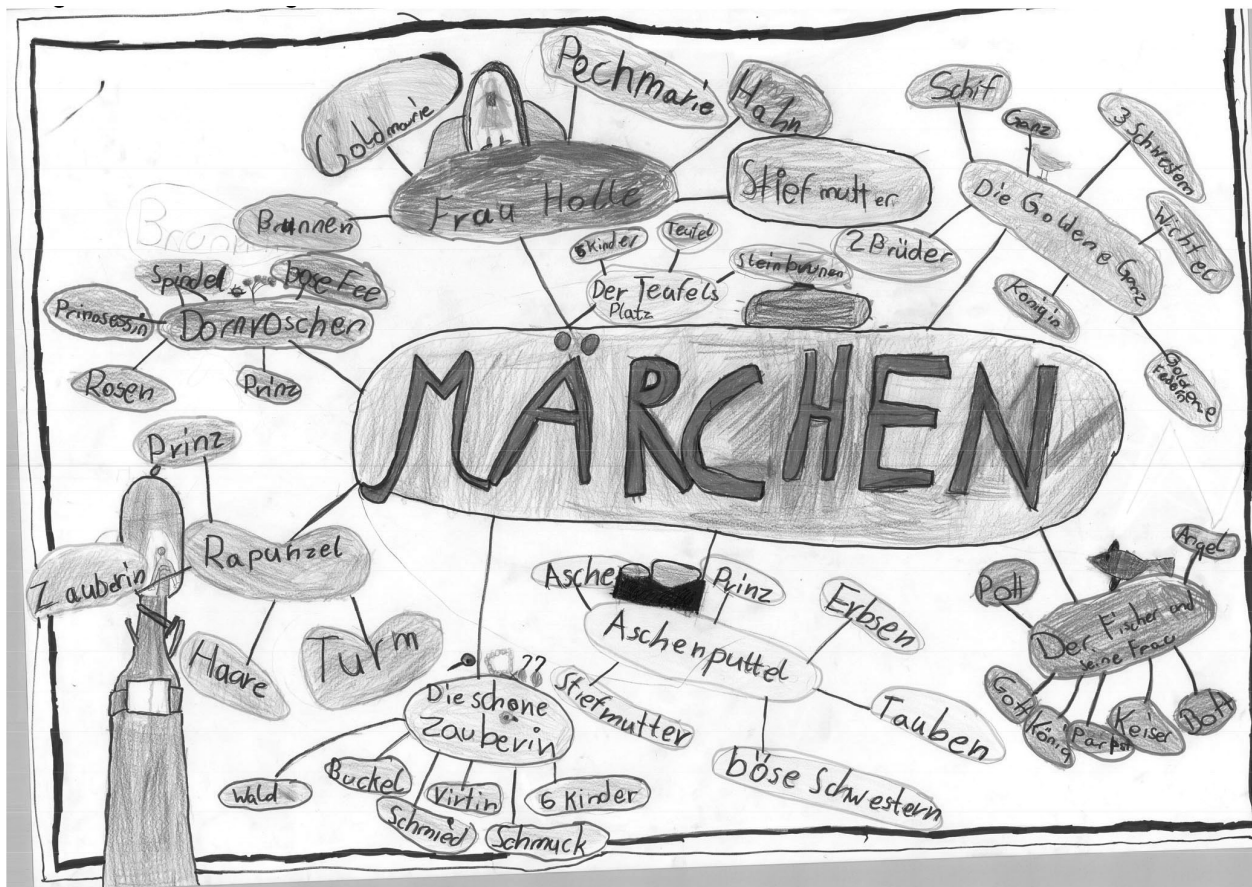 MÄRCHEN
Frau Holle
Goldmarie
Pechmarie
Hahn
Stiefmutter
Brunnen
Der Teufels
Platz
6 Kinder
Teufel
Steinbrunnen
Die Goldene Ganz
Schif
Ganz
3 Schwestern
Wichtel
Goldene
Federn
Königin
2 Brüder
Dornröschen
Spindel
böse Fee
Prinsessin
Rosen
Prinz
Rapunzel
Prinz
Zauberin
Haare
Turm
Die schöne
Zauberin
Wald
Buckel
Schmied
Virtin
Schmuck
6 Kinder
Aschenputtel
Asche
Prinz
Erbsen
Tauben
böse Schwestern
Stiefmutter
Der Fischer und
seine Frau
Pott
Angel
Gott
König
Parpst
Keiser
Bott